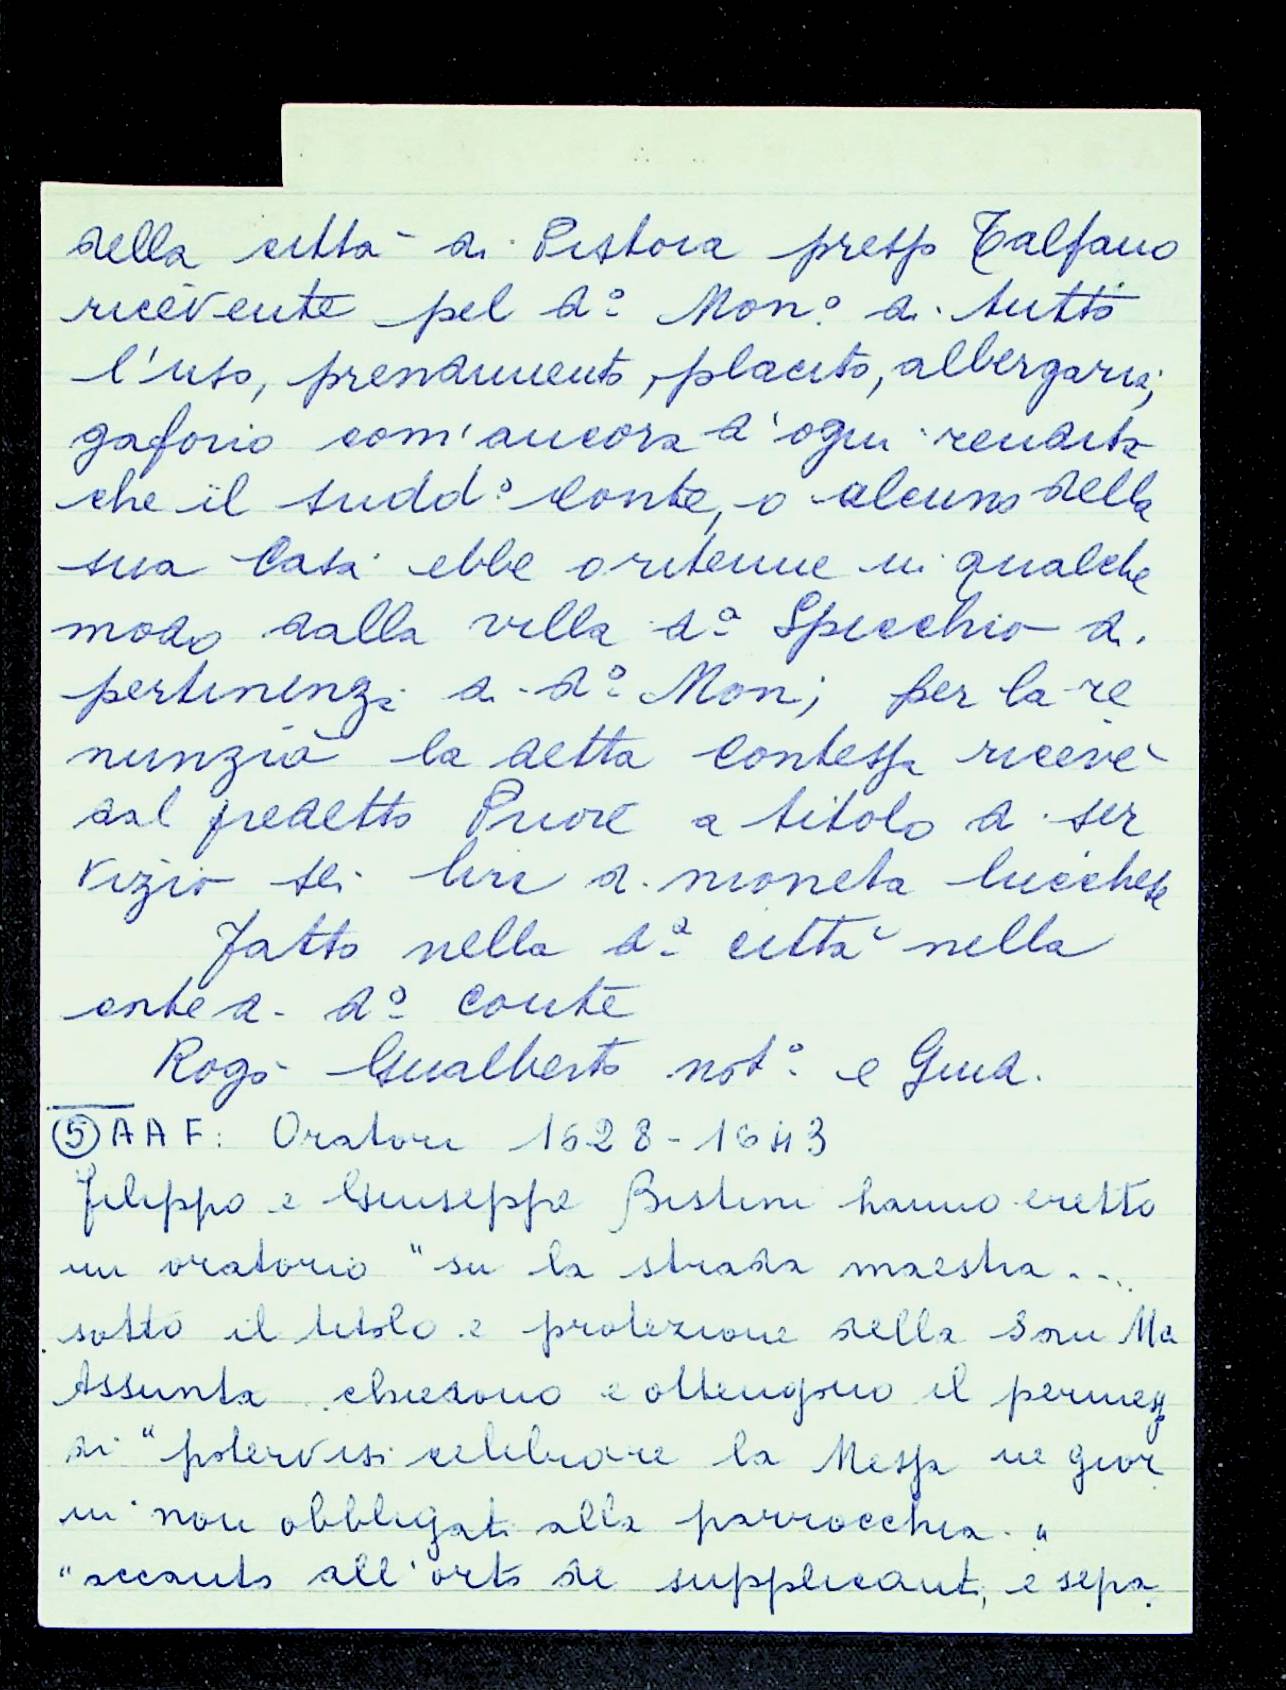 della città di Pistoia presso Talfano
ricevente pel d.º Mon.º di tutto
l'uso, prendimento, placito, albergaria,
gaforio com'ancora d'ogni rendita
che il sudd.º Conte, o alcuno della
sua Casa ebbe o ritenne in qualche
modo dalla villa d.ª Specchio di
pertinenza di d.º Mon; per la re
nunzia la detta Contessa ricevè
dal predetto Priore a titolo di ser
vizio sei lire di moneta lucchese
Fatto nella d.ª città nella
corte di d.º Conte
Rogò Gualberto not.º e Giud.
⑤ AAF: Oratori 1628-1643
Filippo e Giuseppe Bistini hanno eretto
un oratorio "su la strada maestra...
sotto il titolo e protezione della
Assunta chiedono e ottengono il permesso
di "potervisi celebrare la Messa ne gior
ni non obbligati alla parrocchia."
"accanto all'orto de supplicanti, e sepa